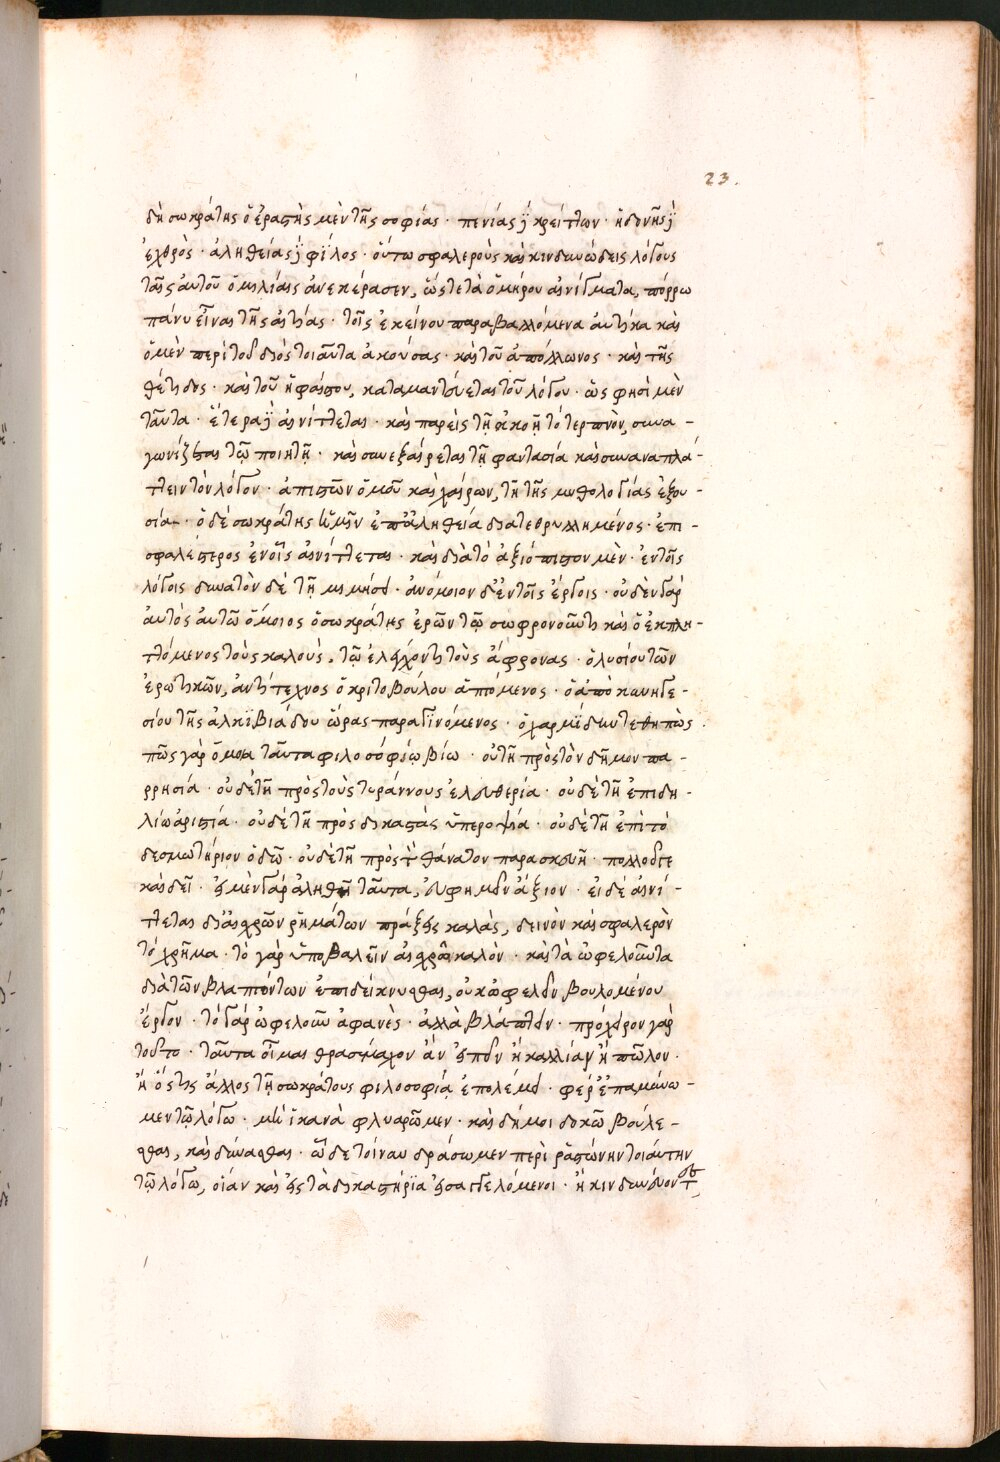 23.
δὴ σωκράτης ὁ ἐραστὴς μὲν τῆς σοφίας · πενίας δὲ κρείττων · ἡδονῆς δὲ
ἐχθρὸς · ἀληθείας δὲ φίλος · οὕτω σφαλεροὺς καὶ κινδυνώδεις λόγους
ταῖς αὑτοῦ ὁμιλίαις ἀνεκέρασεν, ὥστε τὰ ὁμήρου αἰνίγματα, πόρρω
πάνυ εἶναι τῆς αἰτίας · τοῖς ἐκείνου παραβαλλόμενα αὐτίκα καὶ
ὁ μὲν περὶ τοῦ διὸς τοιαῦτα ἀκούσας · καὶ τοῦ ἀπόλλωνος · καὶ τῆς
θέτιδος · καὶ τοῦ ἡφαίστου, καταμαντεύεται τοῦ λόγου · ὡς φησὶ μὲν
ταῦτα · ἕτερα δὲ αἰνίττεται · καὶ παρεὶς τῇ ἀκοῇ τὸ τερπνὸν, συνα -
γωνίζεται τῷ ποιητῇ · καὶ συνεξαίρεται τῇ φαντασία καὶ συναναπλά -
ττει τὸν λόγον · ἀπιστῶν ὁμοῦ καὶ χαίρων, τῇ τῆς μυθολογίας ἐξου -
σία · ὁ δὲ σωκράτης ἡμῖν ἐπ' ἀληθεία διατεθρυλλημένος · ἐπι -
σφαλέστερος ἐν οἷς αἰνίττεται · καὶ διὰ τὸ ἀξιόπιστον μὲν · ἐν τοῖς
λόγοις δυνατὸν δὲ τῇ μιμήσει · ἀνόμοιον δὲ ἐν τοῖς ἔργοις · οὐδὲν γὰρ
αὐτὸς αὑτῷ ὅμοιος ὁ σωκράτης ἐρῶν τῷ σωφρονοῦντι καὶ ὁ ἐκπλη -
ττόμενος τοὺς καλοὺς, τῷ ἐλέγχοντι τοὺς ἄφρονας · ὁ λυσίου τῶν
ἐρωτικῶν, ἀντίτεχνος ὁ κριτοβούλου ἁπτόμενος · ὁ ἀπὸ κυνηγε -
σίου τῆς ἀλκϊβιάδου ὥρας παραγϊνόμενος · ὁ χαρμίδην τεθηπὼς ·
πῶς γὰρ ὅμοια ταῦτα φιλοσόφῳ βίω · οὐ τῇ πρὸς τὸν δῆμον πα -
ρρησία · οὐδὲ τῇ πρὸς τοὺς τυράννους ἐλευθερία · οὐδὲ τῇ ἐπὶ δη -
λίῳ ἀριστία · οὐδὲ τῇ πρὸς δικαστὰς ὑπεροψία · οὐδὲ τῇ ἐπὶ τὸ
δεσμωτήριον ὁδῷ · οὐδὲ τῇ πρὸς τὸν θάνατον παρασκευῇ · πολλοῦ γε
καὶ δεῖ · εἰ μὲν γὰρ ἀληθῆ ταῦτα, εὐφημεῖν ἄξιον · εἰ δὲ αἰνί -
ττεται δι' αἰσχρῶν ῥημάτων πράξεις καλὰς, δεινὸν καὶ σφαλερὸν
τὸ χρῆμα · τὸ γὰρ ὑποβαλεῖν αἰσχρῷ καλὸν · καὶ τὰ ὠφελοῦντα
διὰ τῶν βλαπτόντων ἐπιδείκνυσθαι, οὐκ ὠφελεῖν βουλομένου
ἔργον · τὸ γὰρ ὠφελοῦν ἀφανὲς · ἀλλὰ βλάπτειν · πρόχειρον γὰρ
τοῦτο · ταῦτα οἶμαι θρασύμαχον ἂν εἰπεῖν ἢ καλλίαν ἢ πῶλον ·
ἢ ὅστις ἄλλος τῇ σωκράτους φιλοσοφίᾳ ἐπολέμει · φέρε ἐπαμύνω -
μεν τῷ λόγω · μὴ ἱκανὰ φλυαρῶμεν · καὶ δή μοι δοκῶ βούλε -
σθαι, καὶ δύνασθαι · ὧδε τοίνυν δράσωμεν περὶ ῥᾳστώνην τοιαύτην
τῷ λόγω, οἵαν καὶ εἰς τὰ δικαστήρϊα εἰσαγγελόμενοι · ἢ κινδυνεύον